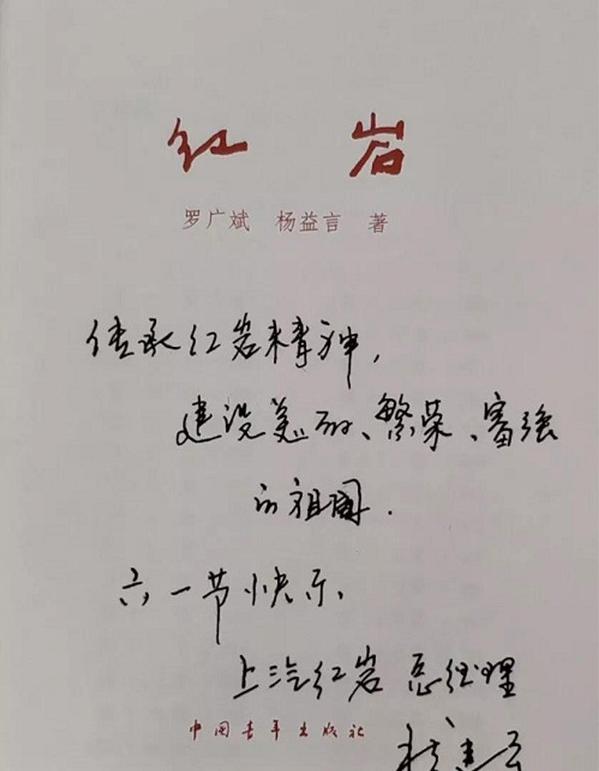 红 岩
罗广斌 杨益言 著
传承红岩精神，
建设美丽、繁荣、富强
的祖国.
六一节快乐、
上汽红岩 总经理
中国青年出版社